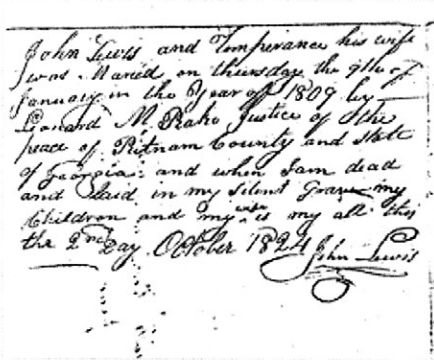 John Lewis and Temperance his wife
was Maried on thursday the 9th of
January in the Year of 1809 by
Leonard M, Justice of the
peace of Putnam County and State
of Georgia and when I am dead
and Laid in my Silent Grave my
Children and my wife is my all this
the 2nd Day October 1824 John Lewis